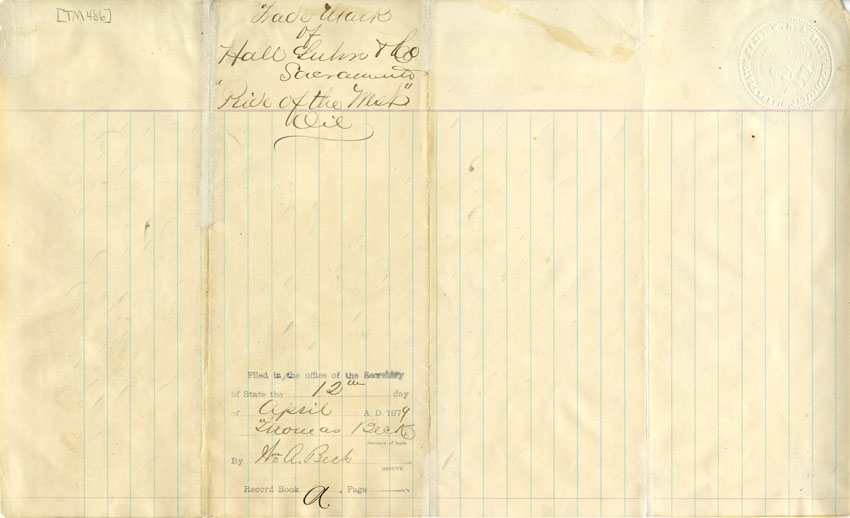 [TM 486]
Trade Mark
of
Hall Luhrs & Co
Sacramento
"Pride of the West"
Oil
Filed in the office of the Secretary
of State the 12th day
of April A.D. 1879
Thomas Beck
Secretary of State
By Wm A. Beck
DEPUTY.
Record Book A, Page